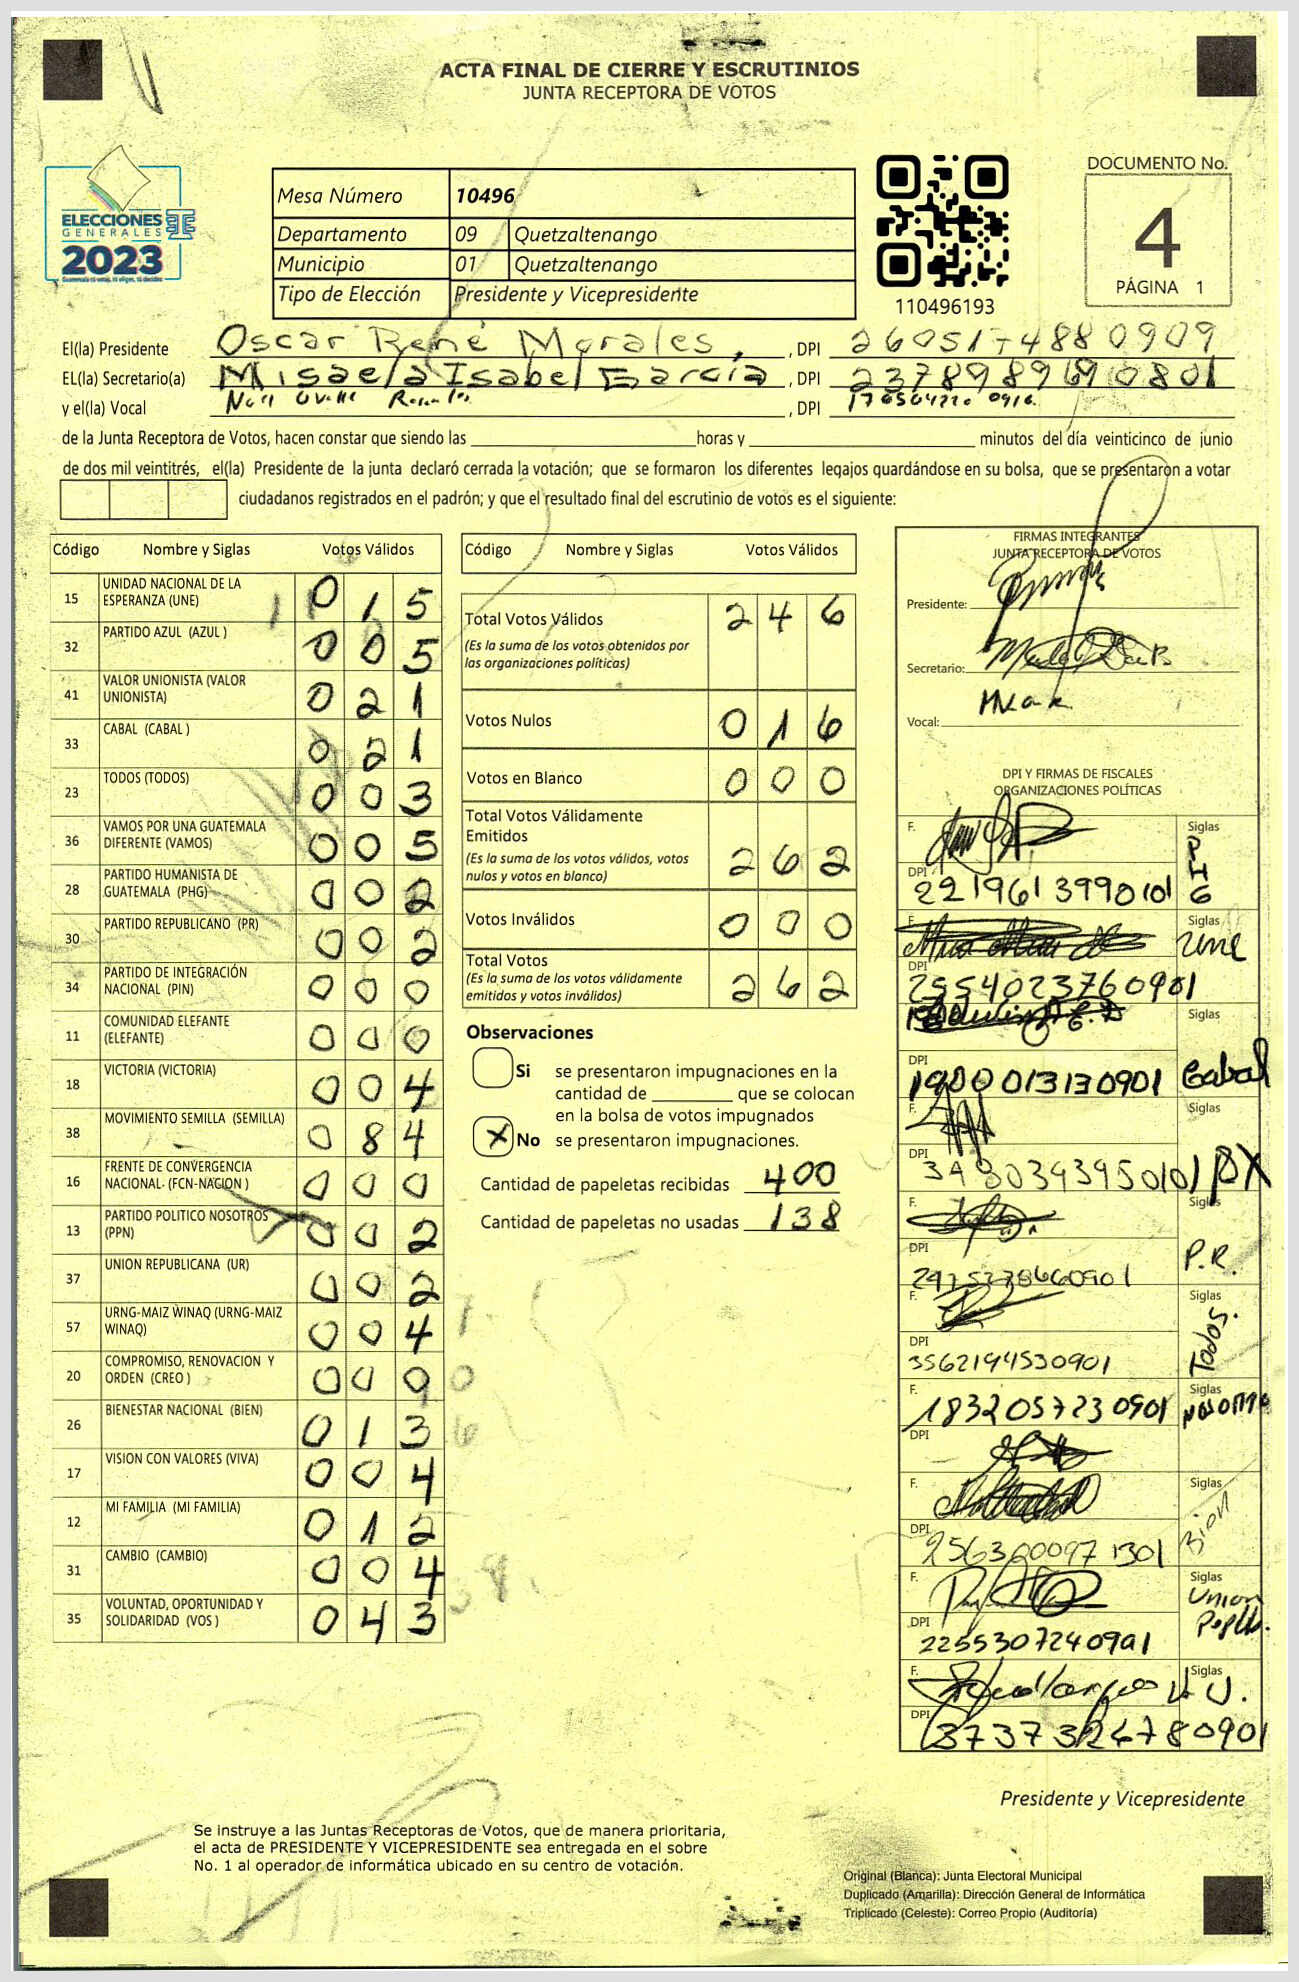 ACTA FINAL DE CIERRE Y ESCRUTINIOS
JUNTA RECEPTORA DE VOTOS
ELECCIONES
GENERALES
2023
Mesa Número 10496
Departamento 09 Quetzaltenango
Municipio 01 Quetzaltenango
Tipo de Elección Presidente y Vicepresidente
110496193
DOCUMENTO No.
4
PÁGINA 1
El(la) Presidente Oscar René Morales, , DPI 2605174880909
EL(la) Secretario(a) Misaela Isabel García , DPI
y el(la) Vocal , DPI
de la Junta Receptora de Votos, hacen constar que siendo las horas y minutos del día veinticinco de junio
de dos mil veintitrés, el(la) Presidente de la junta declaró cerrada la votación; que se formaron los diferentes legajos guardándose en su bolsa, que se presentaron a votar
ciudadanos registrados en el padrón; y que el resultado final del escrutinio de votos es el siguiente:
Código Nombre y Siglas Votos Válidos
15 UNIDAD NACIONAL DE LA ESPERANZA (UNE) 0 1 5
32 PARTIDO AZUL (AZUL ) 0 0 5
41 VALOR UNIONISTA (VALOR UNIONISTA) 0 2 1
33 CABAL (CABAL ) 0 2 1
23 TODOS (TODOS) 0 0 3
36 VAMOS POR UNA GUATEMALA DIFERENTE (VAMOS) 0 0 5
28 PARTIDO HUMANISTA DE GUATEMALA (PHG) 0 0 2
30 PARTIDO REPUBLICANO (PR) 0 0 2
34 PARTIDO DE INTEGRACIÓN NACIONAL (PIN) 0 0 0
11 COMUNIDAD ELEFANTE (ELEFANTE) 0 0 0
18 VICTORIA (VICTORIA) 0 0 4
38 MOVIMIENTO SEMILLA (SEMILLA) 0 8 4
16 FRENTE DE CONVERGENCIA NACIONAL- (FCN-NACION ) 0 0 0
13 PARTIDO POLITICO NOSOTROS (PPN) 0 0 2
37 UNION REPUBLICANA (UR) 0 0 2
57 URNG-MAIZ WINAQ (URNG-MAIZ WINAQ) 0 0 4
20 COMPROMISO, RENOVACION Y ORDEN (CREO ) 0 0 0
26 BIENESTAR NACIONAL (BIEN) 0 1 3
17 VISION CON VALORES (VIVA) 0 0 4
12 MI FAMILIA (MI FAMILIA) 0 1 2
31 CAMBIO (CAMBIO) 0 0 4
35 VOLUNTAD, OPORTUNIDAD Y SOLIDARIDAD (VOS ) 0 4 3
Código Nombre y Siglas Votos Válidos
Total Votos Válidos 2 4 6
(Es la suma de los votos obtenidos por
las organizaciones políticas)
Votos Nulos 0 1 6
Votos en Blanco 0 0 0
Total Votos Válidamente
Emitidos
(Es la suma de los votos válidos, votos
nulos y votos en blanco) 2 6 2
Votos Inválidos 0 0 0
Total Votos
(Es la suma de los votos válidamente
emitidos y votos inválidos) 2 6 2
Observaciones
Si se presentaron impugnaciones en la
cantidad de que se colocan
en la bolsa de votos impugnados
X No se presentaron impugnaciones.
Cantidad de papeletas recibidas 400
Cantidad de papeletas no usadas 138
FIRMAS INTEGRANTES
JUNTA RECEPTORA DE VOTOS
Presidente:
Secretario:
Vocal:
DPI Y FIRMAS DE FISCALES
ORGANIZACIONES POLÍTICAS
F. Siglas PHG
DPI 2219613990101
F. Siglas UNE
DPI 2554023760901
Siglas Cabal
DPI 1900013130901
F. Siglas
DPI 3480343950101
F. Siglas P.R.
DPI
F. Siglas Todos.
DPI 3562194530901
F. 1832057230901 Siglas
DPI
F. Siglas Bien
DPI 2563600971301
F. Siglas Union
DPI 2255307240901
F. Siglas V.U.
DPI 3737326780901
Presidente y Vicepresidente
Se instruye a las Juntas Receptoras de Votos, que de manera prioritaria,
el acta de PRESIDENTE Y VICEPRESIDENTE sea entregada en el sobre
No. 1 al operador de informática ubicado en su centro de votación.
Original (Blanca): Junta Electoral Municipal
Duplicado (Amarilla): Dirección General de Informática
Triplicado (Celeste): Correo Propio (Auditoría)